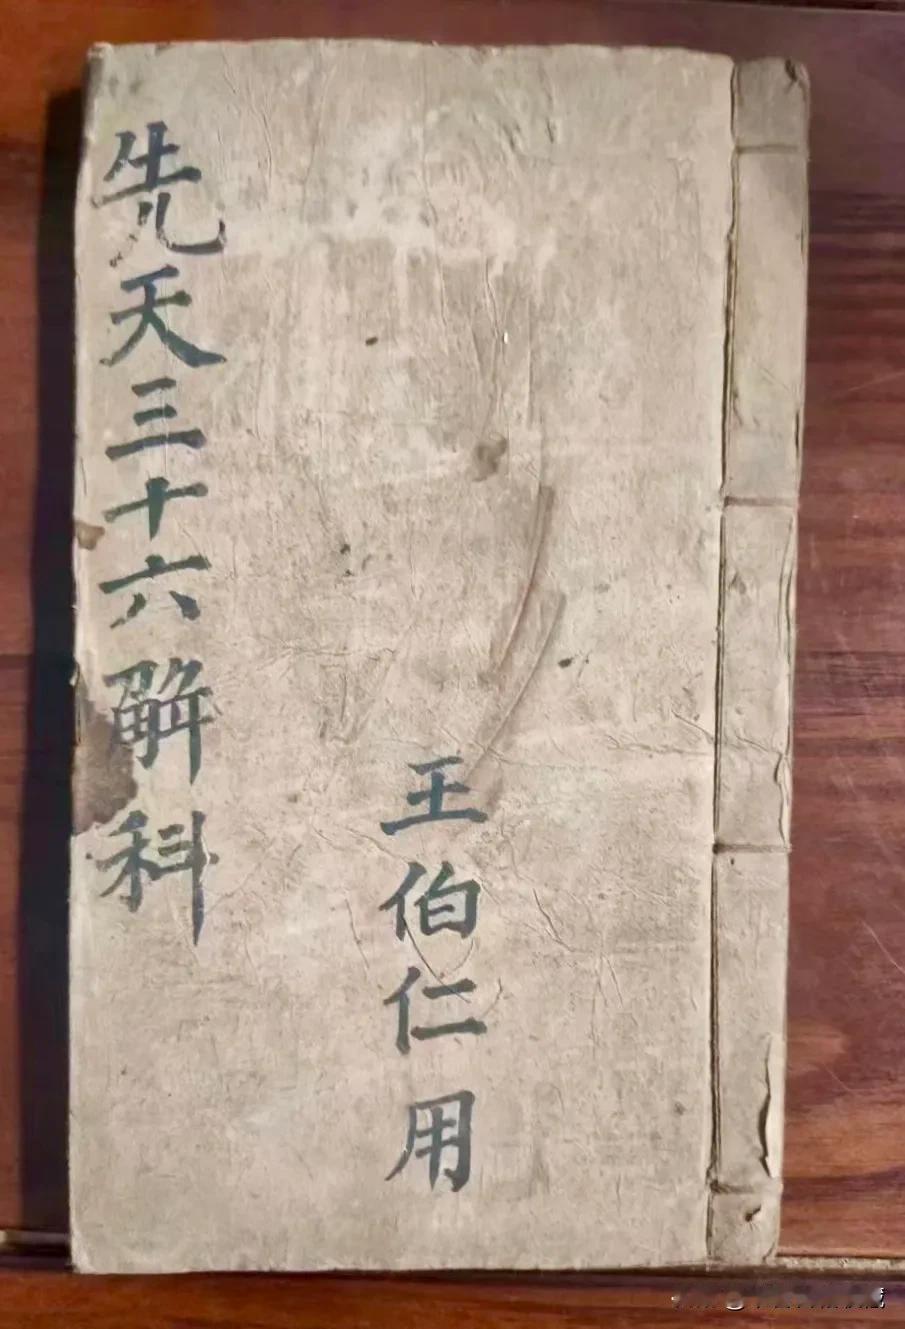 先天三十六解科
王伯仁用